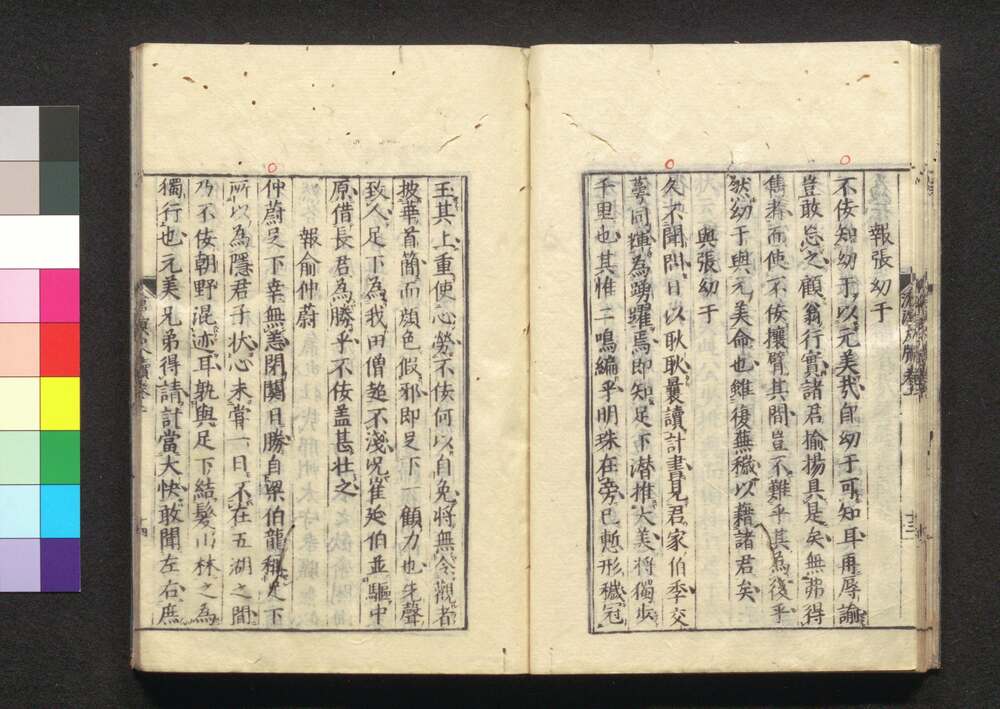 報張幼于
不佞知幼于以元美我自幼于可知耳再辱諭
豈敢忘之顧翁行實諸君揄揚具是矣無弗得
雋者而使不佞攘臂其間豈不難乎其為後乎
然幼于與元美命也雖復蕪穢以藉諸君矣
與張幼于
久不聞問日以耿耿曩讀計書見君家伯季交
蕚同輝為踴躍焉即知足下潜推大美將獨步
千里也其惟二鳴編乎明珠在旁已慙形穢冠
十三
玉其上重使心勞不佞何以自免將無令觀者
披華首簡而顔色假邪即足下一顧力也先聲
致人足下為我田僧超不淺况崔延伯並驅中
原借長君為勝乎不佞盖甚壮之
報俞仲蔚
仲蔚足下幸無恙閉關日勝自梁伯龍稱足下
所以為隱君子狀心未嘗一日不在五湖之間
乃不佞朝野混迹耳孰與足下結髮山林之為
獨行也元美兄弟得請計當大快敢聞左右庶
十四